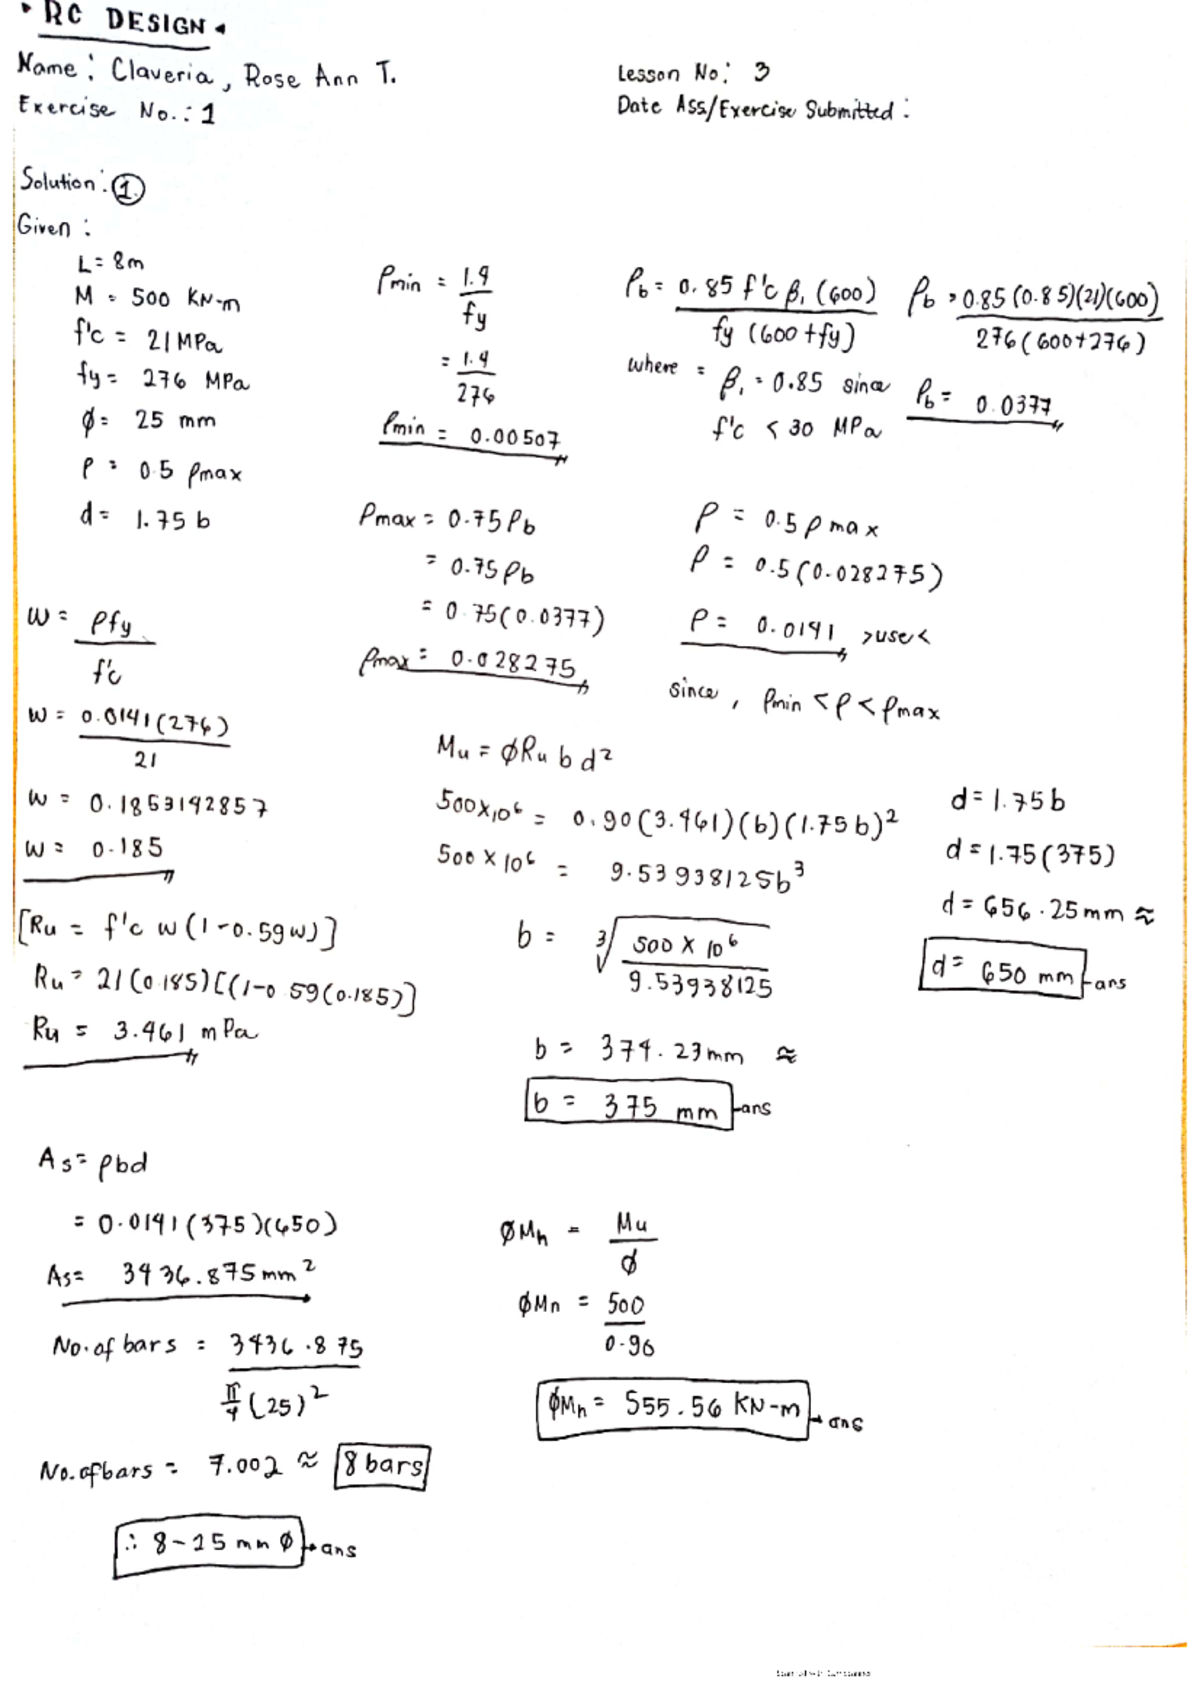 • RC DESIGN •
Name: Claveria, Rose Ann T.
Exercise No.: 1
Lesson No: 3
Date Ass/Exercise Submitted:
Solution: 1.
Given:
L = 8m
M = 500 KN-m
f'c = 21 MPa
fy = 276 MPa
ϕ = 25 mm
ρ = 0.5 ρmax
d = 1.75 b
ρmin = 1.4 / fy
= 1.4 / 276
ρmin = 0.00507
ρb = 0.85 f'c β1 (600) / fy (600 + fy)
where = β1 = 0.85 since
f'c < 30 MPa
ρb = 0.85 (0.85)(21)(600) / 276 (600+276)
ρb = 0.0377
ρmax = 0.75 ρb
= 0.75 ρb
= 0.75 (0.0377)
ρmax = 0.028275
ρ = 0.5 ρ max
ρ = 0.5 (0.028275)
ρ = 0.0141 >use<
since, ρmin < ρ < ρmax
w = ρfy / f'c
w = 0.0141 (276) / 21
w = 0.1853142857
w = 0.185
[Ru = f'c w (1-0.59w)]
Ru = 21 (0.185) [(1-0.59(0.185)]
Ru = 3.461 mPa
Mu = ϕRu b d²
500x10⁶ = 0.90 (3.461) (b) (1.75 b)²
500 x 10⁶ = 9.53938125b³
b = ³√(500 x 10⁶ / 9.53938125)
b = 374.23mm ≈
b = 375 mm ans
d = 1.75b
d = 1.75 (375)
d = 656.25mm ≈
d = 650 mm ans
As = ρbd
= 0.0141 (375)(650)
As = 3436.875 mm²
No. of bars = 3436.875 / π/4 (25)²
No. of bars = 7.002 ≈ 8 bars
∴ 8 - 25 mm ϕ → ans
ϕMn = Mu / ϕ
ϕMn = 500 / 0.90
ϕMn = 555.56 KN-m → ans